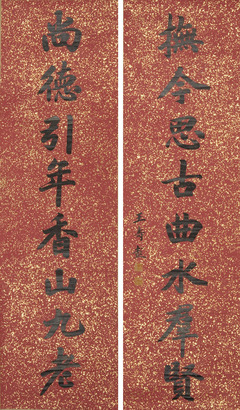 撫今思古曲水羣賢
尚德引年香山九老